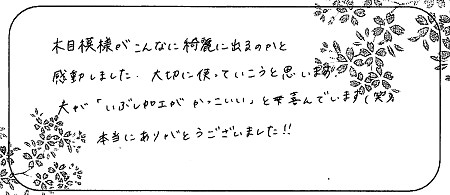 木目模様がこんなに綺麗に出るのかと
感動しました. 大切に使っていこうと思います
夫が「いぶし加工がかっこいい」と喜んでいます(笑)
本当にありがとうございました!!